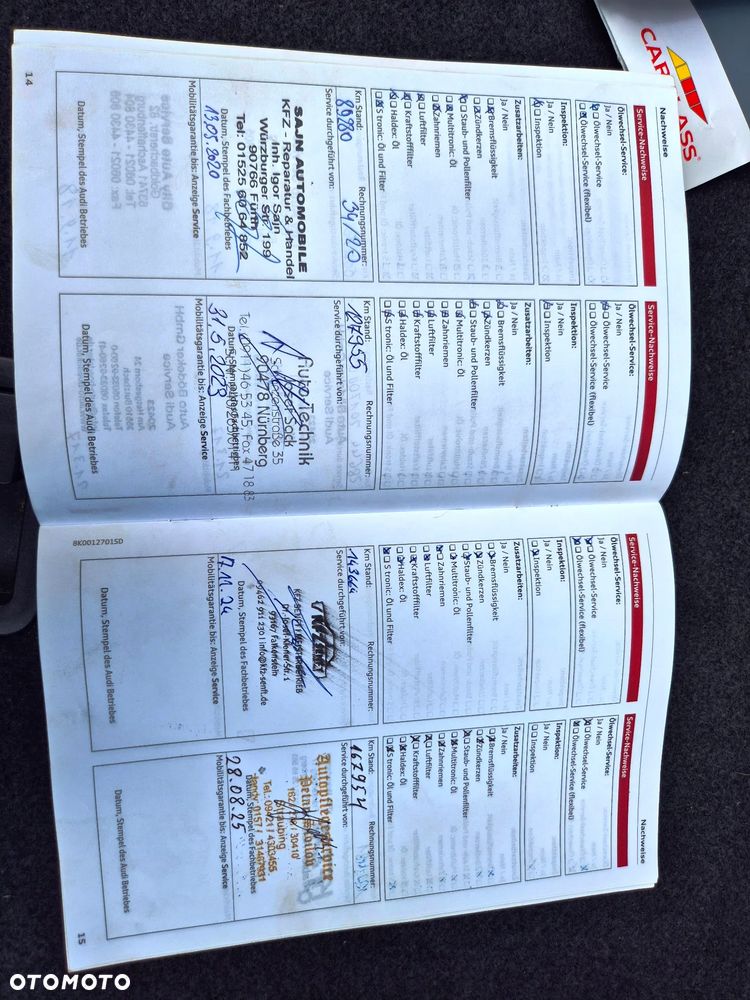 14
Nachweise
Service-Nachweise
Ölwechsel-Service:
Ja / Nein
Ölwechsel-Service
Ölwechsel-Service (flexibel)
Inspektion:
Ja / Nein
Inspektion
Zusatzarbeiten:
Ja / Nein
Bremsflüssigkeit
Zündkerzen
Staub- und Pollenfilter
Multitronic: Öl
Zahnriemen
Luftfilter
Kraftstofffilter
Haldex: Öl
S tronic: Öl und Filter
Km Stand:
Rechnungsnummer:
89280
34/20
Service durchgeführt von:
SAJN AUTOMOBILE
KFZ - Reparatur & Handel
Inh. Igor Sajn
Würzburger Str. 199
90766 Fürth
Tel: 01525 60 64 952
Datum, Stempel des Fachbetriebes
13.05.2020
Mobilitätsgarantie bis: Anzeige Service
Datum, Stempel des Audi Betriebes
Service-Nachweise
Ölwechsel-Service:
Ja / Nein
Ölwechsel-Service
Ölwechsel-Service (flexibel)
Inspektion:
Ja / Nein
Inspektion
Zusatzarbeiten:
Ja / Nein
Bremsflüssigkeit
Zündkerzen
Staub- und Pollenfilter
Multitronic: Öl
Zahnriemen
Luftfilter
Kraftstofffilter
Haldex: Öl
S tronic: Öl und Filter
Km Stand:
Rechnungsnummer:
127955
Service durchgeführt von:
Auto Technik
Josef Sock
35
90478 Nürnberg
Tel. 0911/46 53 45, Fax 47 18 83
Datum, Stempel des Fachbetriebes
31.5.2023
Mobilitätsgarantie bis: Anzeige Service
Datum, Stempel des Audi Betriebes
8K0012701SD
Service-Nachweise
Ölwechsel-Service:
Ja / Nein
Ölwechsel-Service
Ölwechsel-Service (flexibel)
Inspektion:
Ja / Nein
Inspektion
Zusatzarbeiten:
Ja / Nein
Bremsflüssigkeit
Zündkerzen
Staub- und Pollenfilter
Multitronic: Öl
Zahnriemen
Luftfilter
Kraftstofffilter
Haldex: Öl
S tronic: Öl und Filter
Km Stand:
Rechnungsnummer:
143664
Service durchgeführt von:
93167 Falkenstein
09462 911 230 | info@kfz-senft.de
Datum, Stempel des Fachbetriebes
17.11.24
Mobilitätsgarantie bis: Anzeige Service
Datum, Stempel des Audi Betriebes
Nachweise
Service-Nachweise
Ölwechsel-Service:
Ja / Nein
Ölwechsel-Service
Ölwechsel-Service (flexibel)
Inspektion:
Ja / Nein
Inspektion
Zusatzarbeiten:
Ja / Nein
Bremsflüssigkeit
Zündkerzen
Staub- und Pollenfilter
Multitronic: Öl
Zahnriemen
Luftfilter
Kraftstofffilter
Haldex: Öl
S tronic: Öl und Filter
Km Stand:
Rechnungsnummer:
167954
Service durchgeführt von:
Autopflegeservice
Straubing
Tel.: 09421 / 4303455
Handy 0157 / 31467931
Datum, Stempel des Fachbetriebes
28.08.25
Mobilitätsgarantie bis: Anzeige Service
Datum, Stempel des Audi Betriebes
15
OTOMOTO